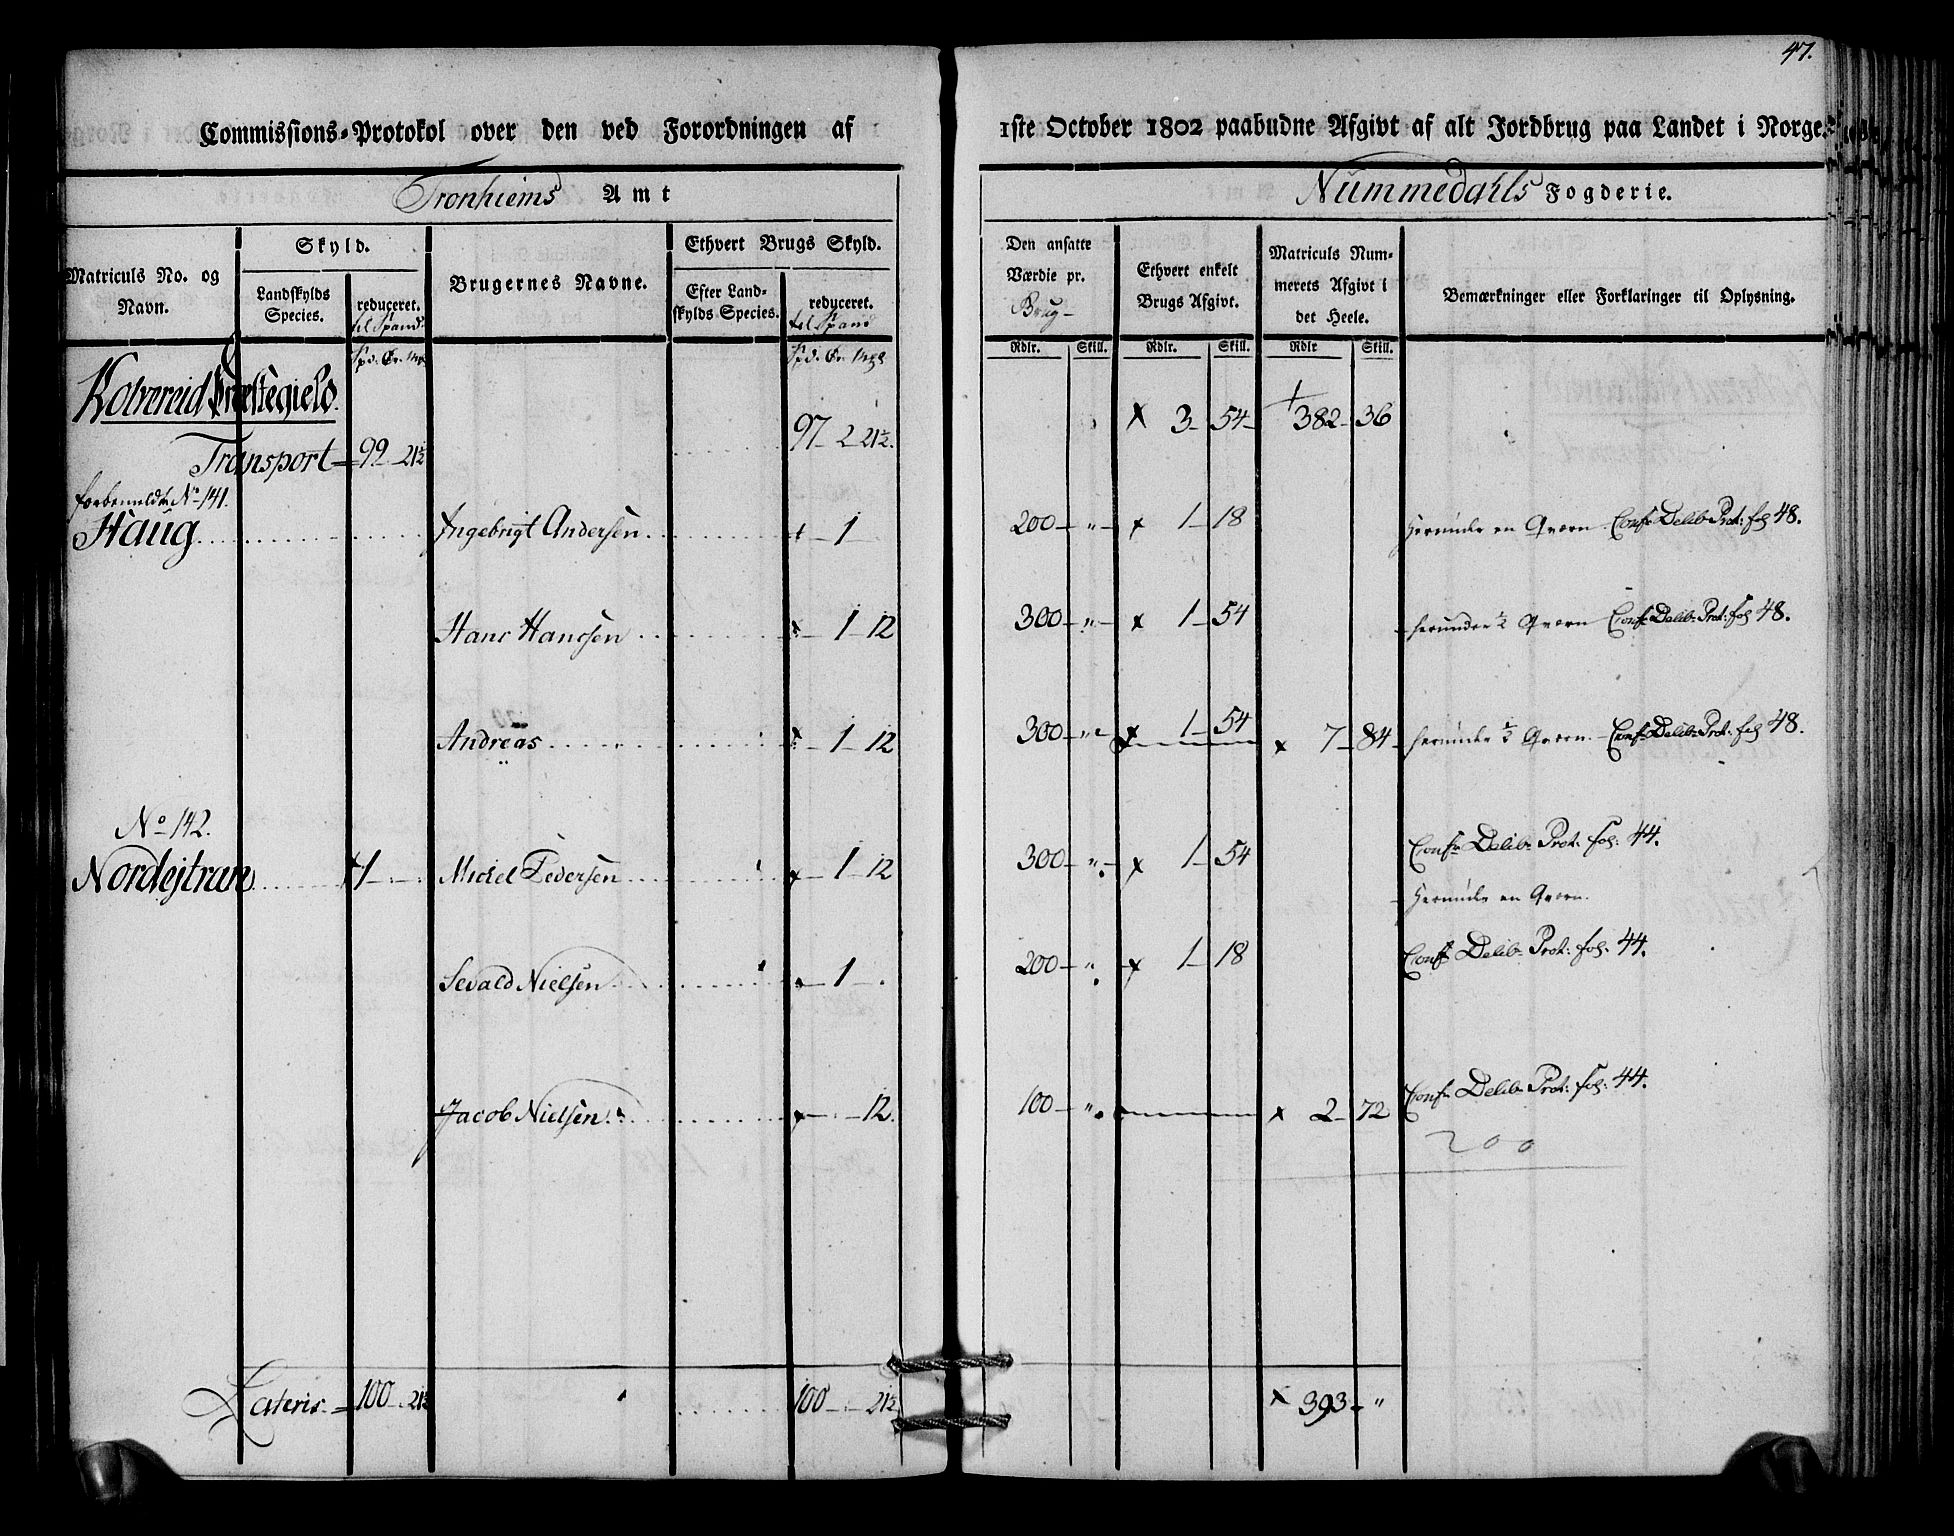 47.
Commissions-Protokol over den ved Forordningen af 1ste October 1802 paabudne Afgivt af alt Jordbrug paa Landet i Norge.
Tronhiems Amt
Nummedahls Fogderie.
Matriculs No. og Navn.
Skyld.
Landskylds Species.
reduceret. til Spand
Brugernes Navne.
Ethvert Brugs Skyld.
Efter Landskylds Species.
reduceret. til Spand
Den ansatte Værdie pr. Brug
Ethvert enkelt Brugs Afgivt.
Matriculs Nummerets Afgivt i det Heele.
Bemærkninger eller Forklaringer til Oplysning.
Rdlr. Skill. Rdlr. Skill. Rdlr Skill.
Kolvereid Præstegield.
Transport 99 - 21½ 97 - 2 21½. x 3 - 54 - 382 - 36
forbemeldte No 141.
Haug Ingebrigt Andersen + - 1 200 - " - x 1 - 18 Herunder en Qværn Confr Delib Prot: fol 48.
Hans Hanssen x - 1 - 12 300 - " - x 1 - 54 herunder ½ Qværn Confr Delib Prot: fol 48.
Andreas " x - 1 - 12 300 - " - x 1 - 54 x 7 - 84 herunder ½ Qværn. Confr Delib Prot: fol 48.
No 142.
Nordejtran 1 Michel Pedersen x - 1 - 12 300 - " - x 1 - 54 Confr Delib Prot: fol: 44.
Herunder en Qværn.
Sevald Nielsen x - 1 - 200 - " - x 1 - 18 Confr Delib Prot: fol: 44.
Jacob Nielsen x - - 12. 100 - " x 2 - 72 Confr Delib Prot: fol: 44.
200
Lateris 100 - 21½ 100 - 21½ x 393 - "